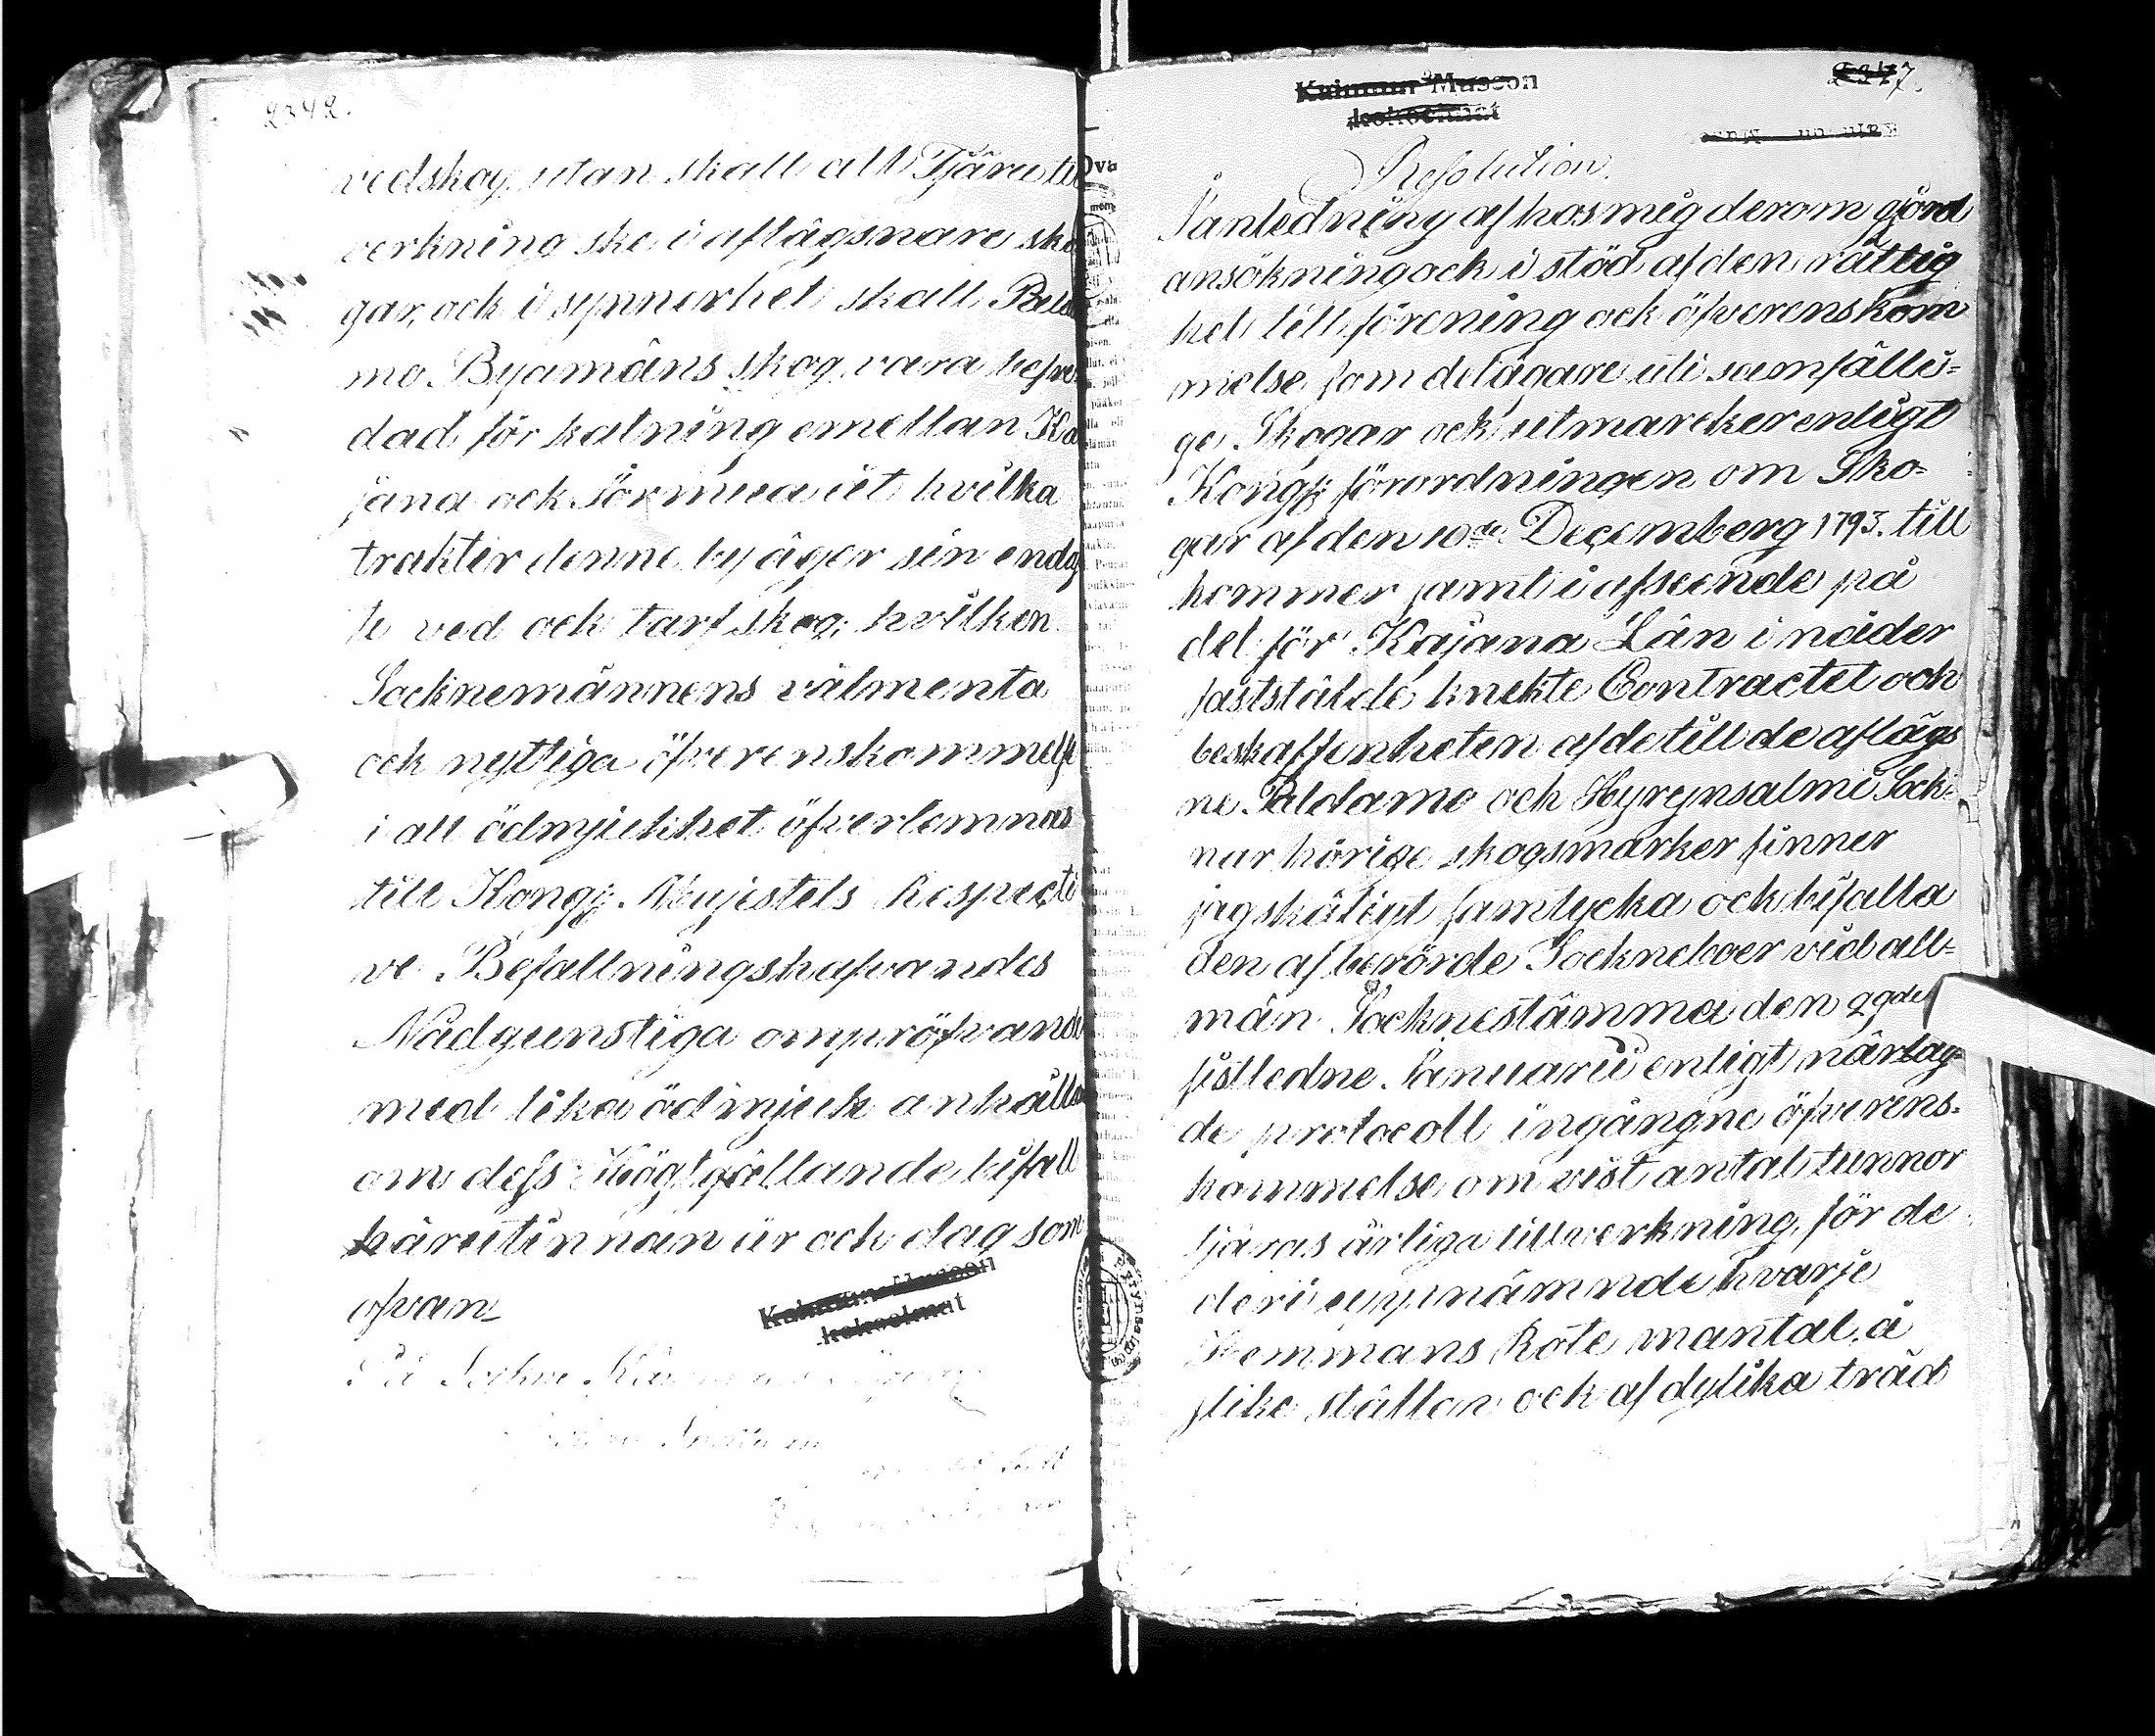 2342.
vedskog, utan skall all Tjäru til
verkning ske i aflägsnare sko
gar, och i synnerhet skall Palda
mo Byamäns skog vara befre
dad för katning emellan Ka
jana och Sörmua üt hvilka
trakter denne by äger sin enda
te ved och tarf skog; hvilken
Socknemännens välmenta
och nyttiga öfverenskommelse
i all ödmjukhet öfverlemnas
till Kongl: Majestets Respecti
ve Befallningshafvandes
Nådgunstiga ompröfvande
med lika ödmjuk anhållan
om dess Högtgällande bifall
härutinnan ür och dag som
ofvan
På Sockne
Kainuun Museon
kokoelmat
2347.
Resolution.
I anledning af hos mig derom gjord
ansökning och i stöd af den rättig
het till förening och öfverenskom
melse som delägare uti samfälli=
ge Skogar och utmarcker enligt
Kongl: förordningen om Sko=
gar af den 10de December 1793. till
kommer samt i afseende på
det för Kajana Län i nåder
fastställde knekte Contractet och
beskaffenheten af de till de aflägs
ne Paldamo och Hyrynsalmi Sock=
nar hörige skogsmarker finner
jag skäligt samtycka och bifalla
den af berörde Sockneboer vid all=
män Socknestämma den 29de
sistledne Januarii enligt närlag=
de protocoll ingångne öfverens=
kommelse om vist antal tunnor
tjäras årliga tillverkning, för de
deri uppnämnde hvarje
Hemmans Rote mantal, å
slike ställen och af dylika träd